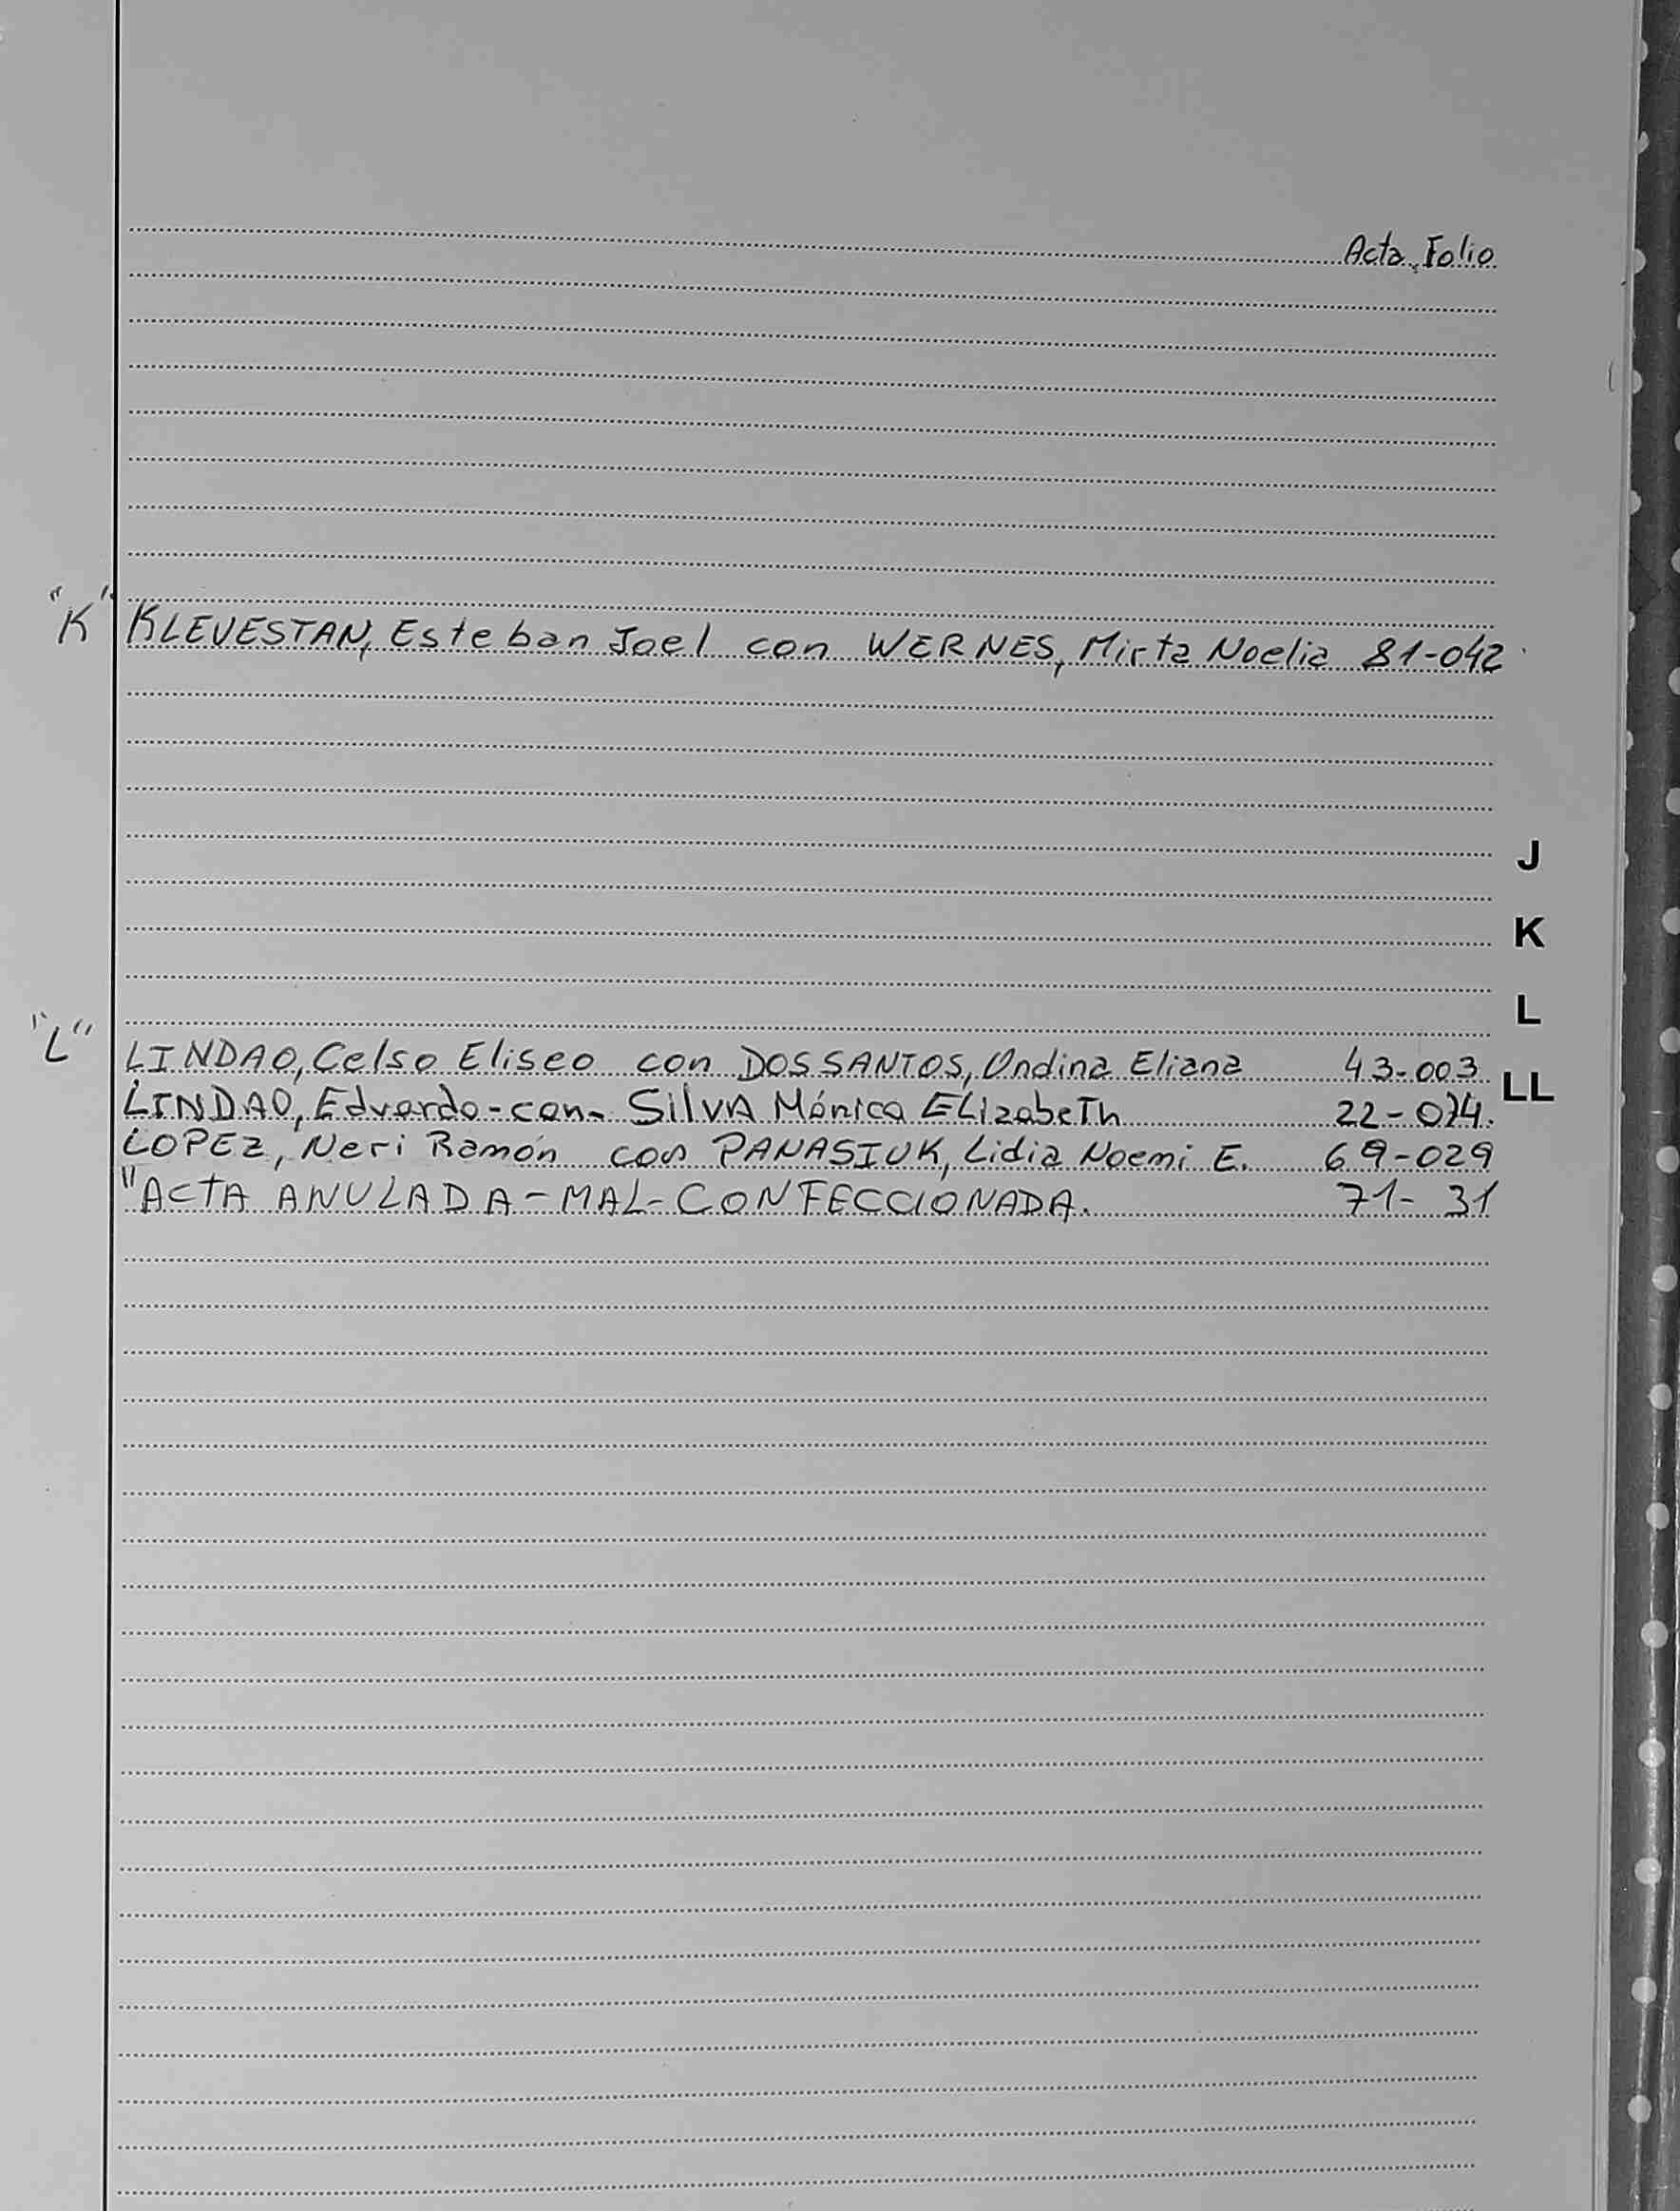 Acta Folio
"K" KLEVESTAN, Esteban Joel con WERNES, Mirta Noelia 81-042
J
K
L
"L" LINDAO, Celso Eliseo con DOSSANTOS, Ondina Eliana 43-003
LL
LINDAO, Eduardo-con- SilvA Mónica ELizabeTh 22-024.
LOPEZ, Neri Ramón con PANASIUK, Lidia Noemi E. 69-029
"ACTA ANULADA-MAL-CONFECCIONADA. 71-31